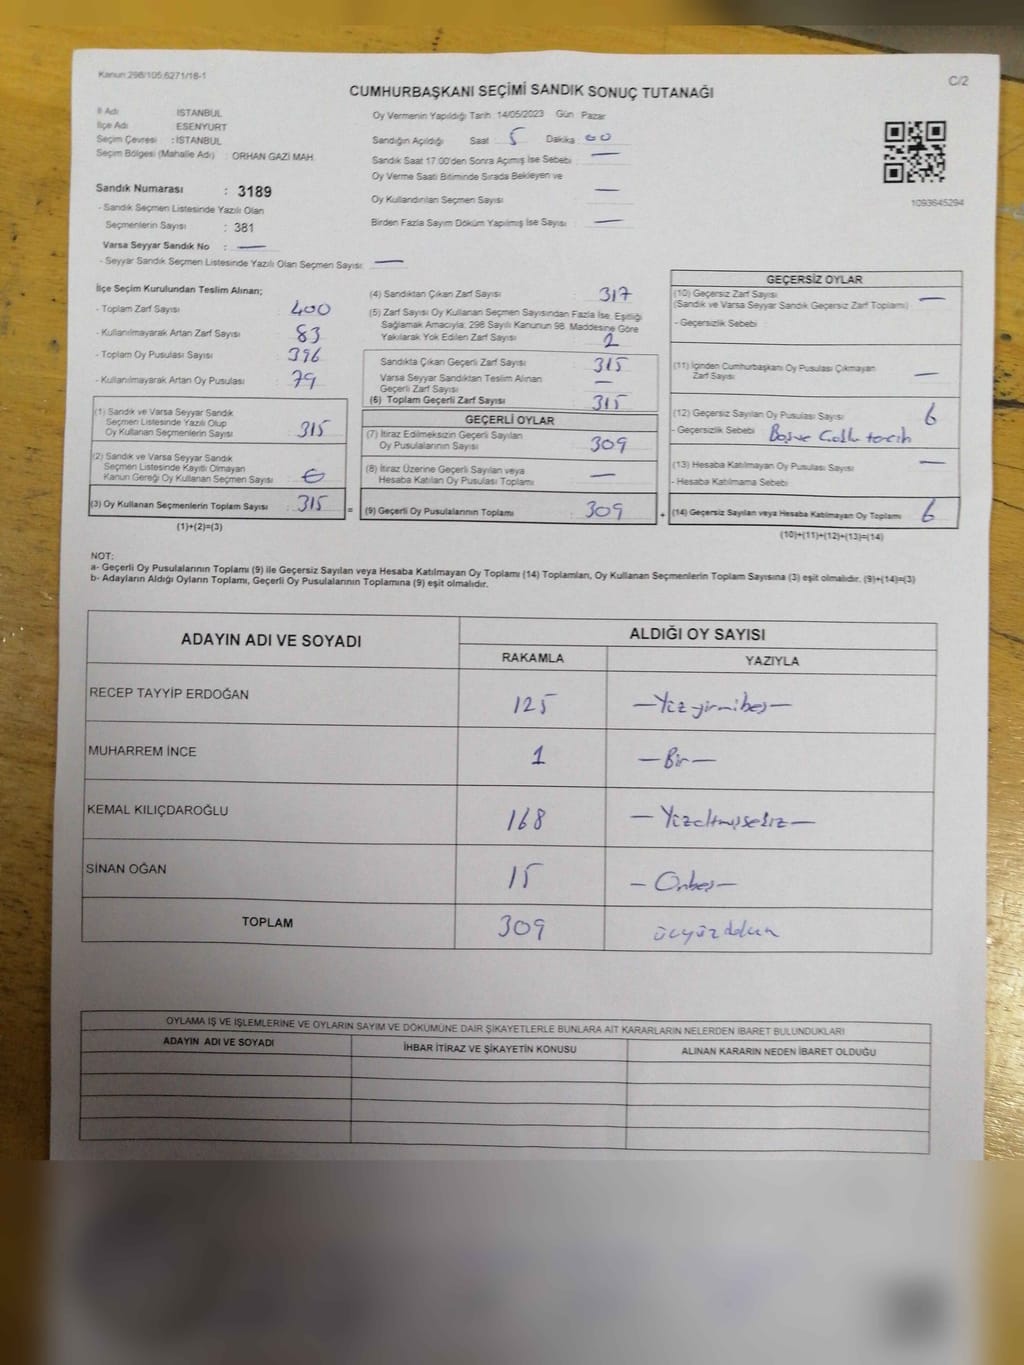 Kanun:298/105,6271/18-1
C/2
CUMHURBAŞKANI SEÇİMİ SANDIK SONUÇ TUTANAĞI
İl Adı : İSTANBUL
İlçe Adı : ESENYURT
Seçim Çevresi : İSTANBUL
Seçim Bölgesi (Mahalle Adı) : ORHAN GAZİ MAH.
Oy Vermenin Yapıldığı Tarih 14/05/2023 Gün Pazar
Sandığın Açıldığı Saat 5 Dakika 00
Sandık Saat 17.00'den Sonra Açımış İse Sebebi : —
Oy Verme Saati Bitiminde Sırada Bekleyen ve
Oy Kullandırılan Seçmen Sayısı —
Birden Fazla Sayım Döküm Yapılmış İse Sayısı —
1093645294
Sandık Numarası : 3189
- Sandık Seçmen Listesinde Yazılı Olan
Seçmenlerin Sayısı : 381
Varsa Seyyar Sandık No : —
- Seyyar Sandık Seçmen Listesinde Yazılı Olan Seçmen Sayısı: —
İlçe Seçim Kurulundan Teslim Alınan;
- Toplam Zarf Sayısı 400
- Kullanılmayarak Artan Zarf Sayısı 83
- Toplam Oy Pusulası Sayısı 396
- Kullanılmayarak Artan Oy Pusulası 79
(1) Sandık ve Varsa Seyyar Sandık
Seçmen Listesinde Yazılı Olup
Oy Kullanan Seçmenlerin Sayısı 315
(2) Sandık ve Varsa Seyyar Sandık
Seçmen Listesinde Kayıtlı Olmayan
Kanun Gereği Oy Kullanan Seçmen Sayısı
(3) Oy Kullanan Seçmenlerin Toplam Sayısı 315 =
(1)+(2)=(3)
(4) Sandıktan Çıkan Zarf Sayısı 317
(5) Zarf Sayısı Oy Kullanan Seçmen Sayısından Fazla İse, Eşitliği
Sağlamak Amacıyla, 298 Sayılı Kanunun 98. Maddesine Göre
Yakılarak Yok Edilen Zarf Sayısı 2
Sandıkta Çıkan Geçerli Zarf Sayısı 315
Varsa Seyyar Sandıktan Teslim Alınan
Geçerli Zarf Sayısı —
(6) Toplam Geçerli Zarf Sayısı 315
GEÇERLİ OYLAR
(7) İtiraz Edilmeksizin Geçerli Sayılan
Oy Pusulalarının Sayısı 309
(8) İtiraz Üzerine Geçerli Sayılan veya
Hesaba Katılan Oy Pusulası Toplamı —
(9) Geçerli Oy Pusulalarının Toplamı 309 +
GEÇERSİZ OYLAR
(10) Geçersiz Zarf Sayısı —
(Sandık ve Varsa Seyyar Sandık Geçersiz Zarf Toplamı)
- Geçersizlik Sebebi :
(11) İçinden Cumhurbaşkanı Oy Pusulası Çıkmayan
Zarf Sayısı —
(12) Geçersiz Sayılan Oy Pusulası Sayısı 6
- Geçersizlik Sebebi Boş ve Çoklu tercih
(13) Hesaba Katılmayan Oy Pusulası Sayısı —
- Hesaba Katılmama Sebebi
(14) Geçersiz Sayılan veya Hesaba Katılmayan Oy Toplamı 6
(10)+(11)+(12)+(13)=(14)
NOT:
a- Geçerli Oy Pusulalarının Toplamı (9) ile Geçersiz Sayılan veya Hesaba Katılmayan Oy Toplamı (14) Toplamları, Oy Kullanan Seçmenlerin Toplam Sayısına (3) eşit olmalıdır. (9)+(14)=(3)
b- Adayların Aldığı Oyların Toplamı, Geçerli Oy Pusulalarının Toplamına (9) eşit olmalıdır.
ADAYIN ADI VE SOYADI
ALDIĞI OY SAYISI
RAKAMLA YAZIYLA
RECEP TAYYİP ERDOĞAN 125 —Yüzyirmibeş—
MUHARREM İNCE 1 —Bir—
KEMAL KILIÇDAROĞLU 168 —Yüzaltmışsekiz—
SİNAN OĞAN 15 —Onbeş—
TOPLAM 309 üçyüzdokuz
OYLAMA İŞ VE İŞLEMLERİNE VE OYLARIN SAYIM VE DÖKÜMÜNE DAİR ŞİKAYETLERLE BUNLARA AİT KARARLARIN NELERDEN İBARET BULUNDUKLARI
ADAYIN ADI VE SOYADI
İHBAR İTİRAZ VE ŞİKAYETİN KONUSU
ALINAN KARARIN NEDEN İBARET OLDUĞU